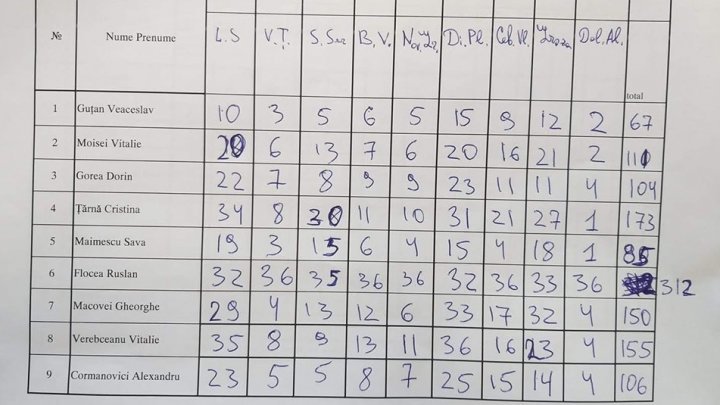 № Nume Prenume L.S V.Ț. S.Sec B.V. Di.Pl. Ceb.Vl. Dol.Al. total
1 Guțan Veaceslav 10 3 5 6 5 15 9 12 2 67
2 Moisei Vitalie 20 6 13 7 6 20 16 21 2 111
3 Gorea Dorin 22 7 8 9 9 23 11 11 4 104
4 Țărnă Cristina 34 8 30 11 10 31 21 27 1 173
5 Maimescu Sava 19 3 15 6 4 15 4 18 1 85
6 Flocea Ruslan 32 36 35 36 36 32 36 33 36 312
7 Macovei Gheorghe 29 4 13 12 6 33 17 32 4 150
8 Verebceanu Vitalie 35 8 9 13 11 36 16 23 4 155
9 Cormanovici Alexandru 23 5 5 8 7 25 15 14 4 106